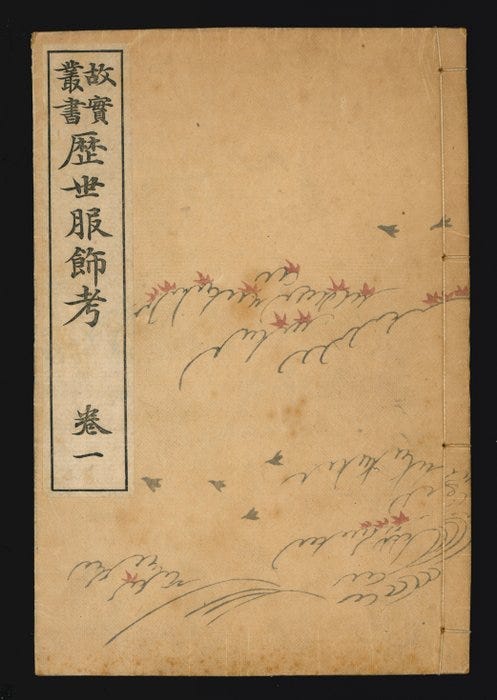 故實
叢書
歷世服飾考
卷一